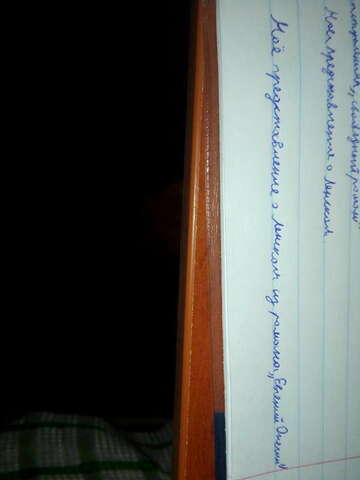 Моё представление о Ленском
Моё представление о Ленском из романа „Евгений Онегин"